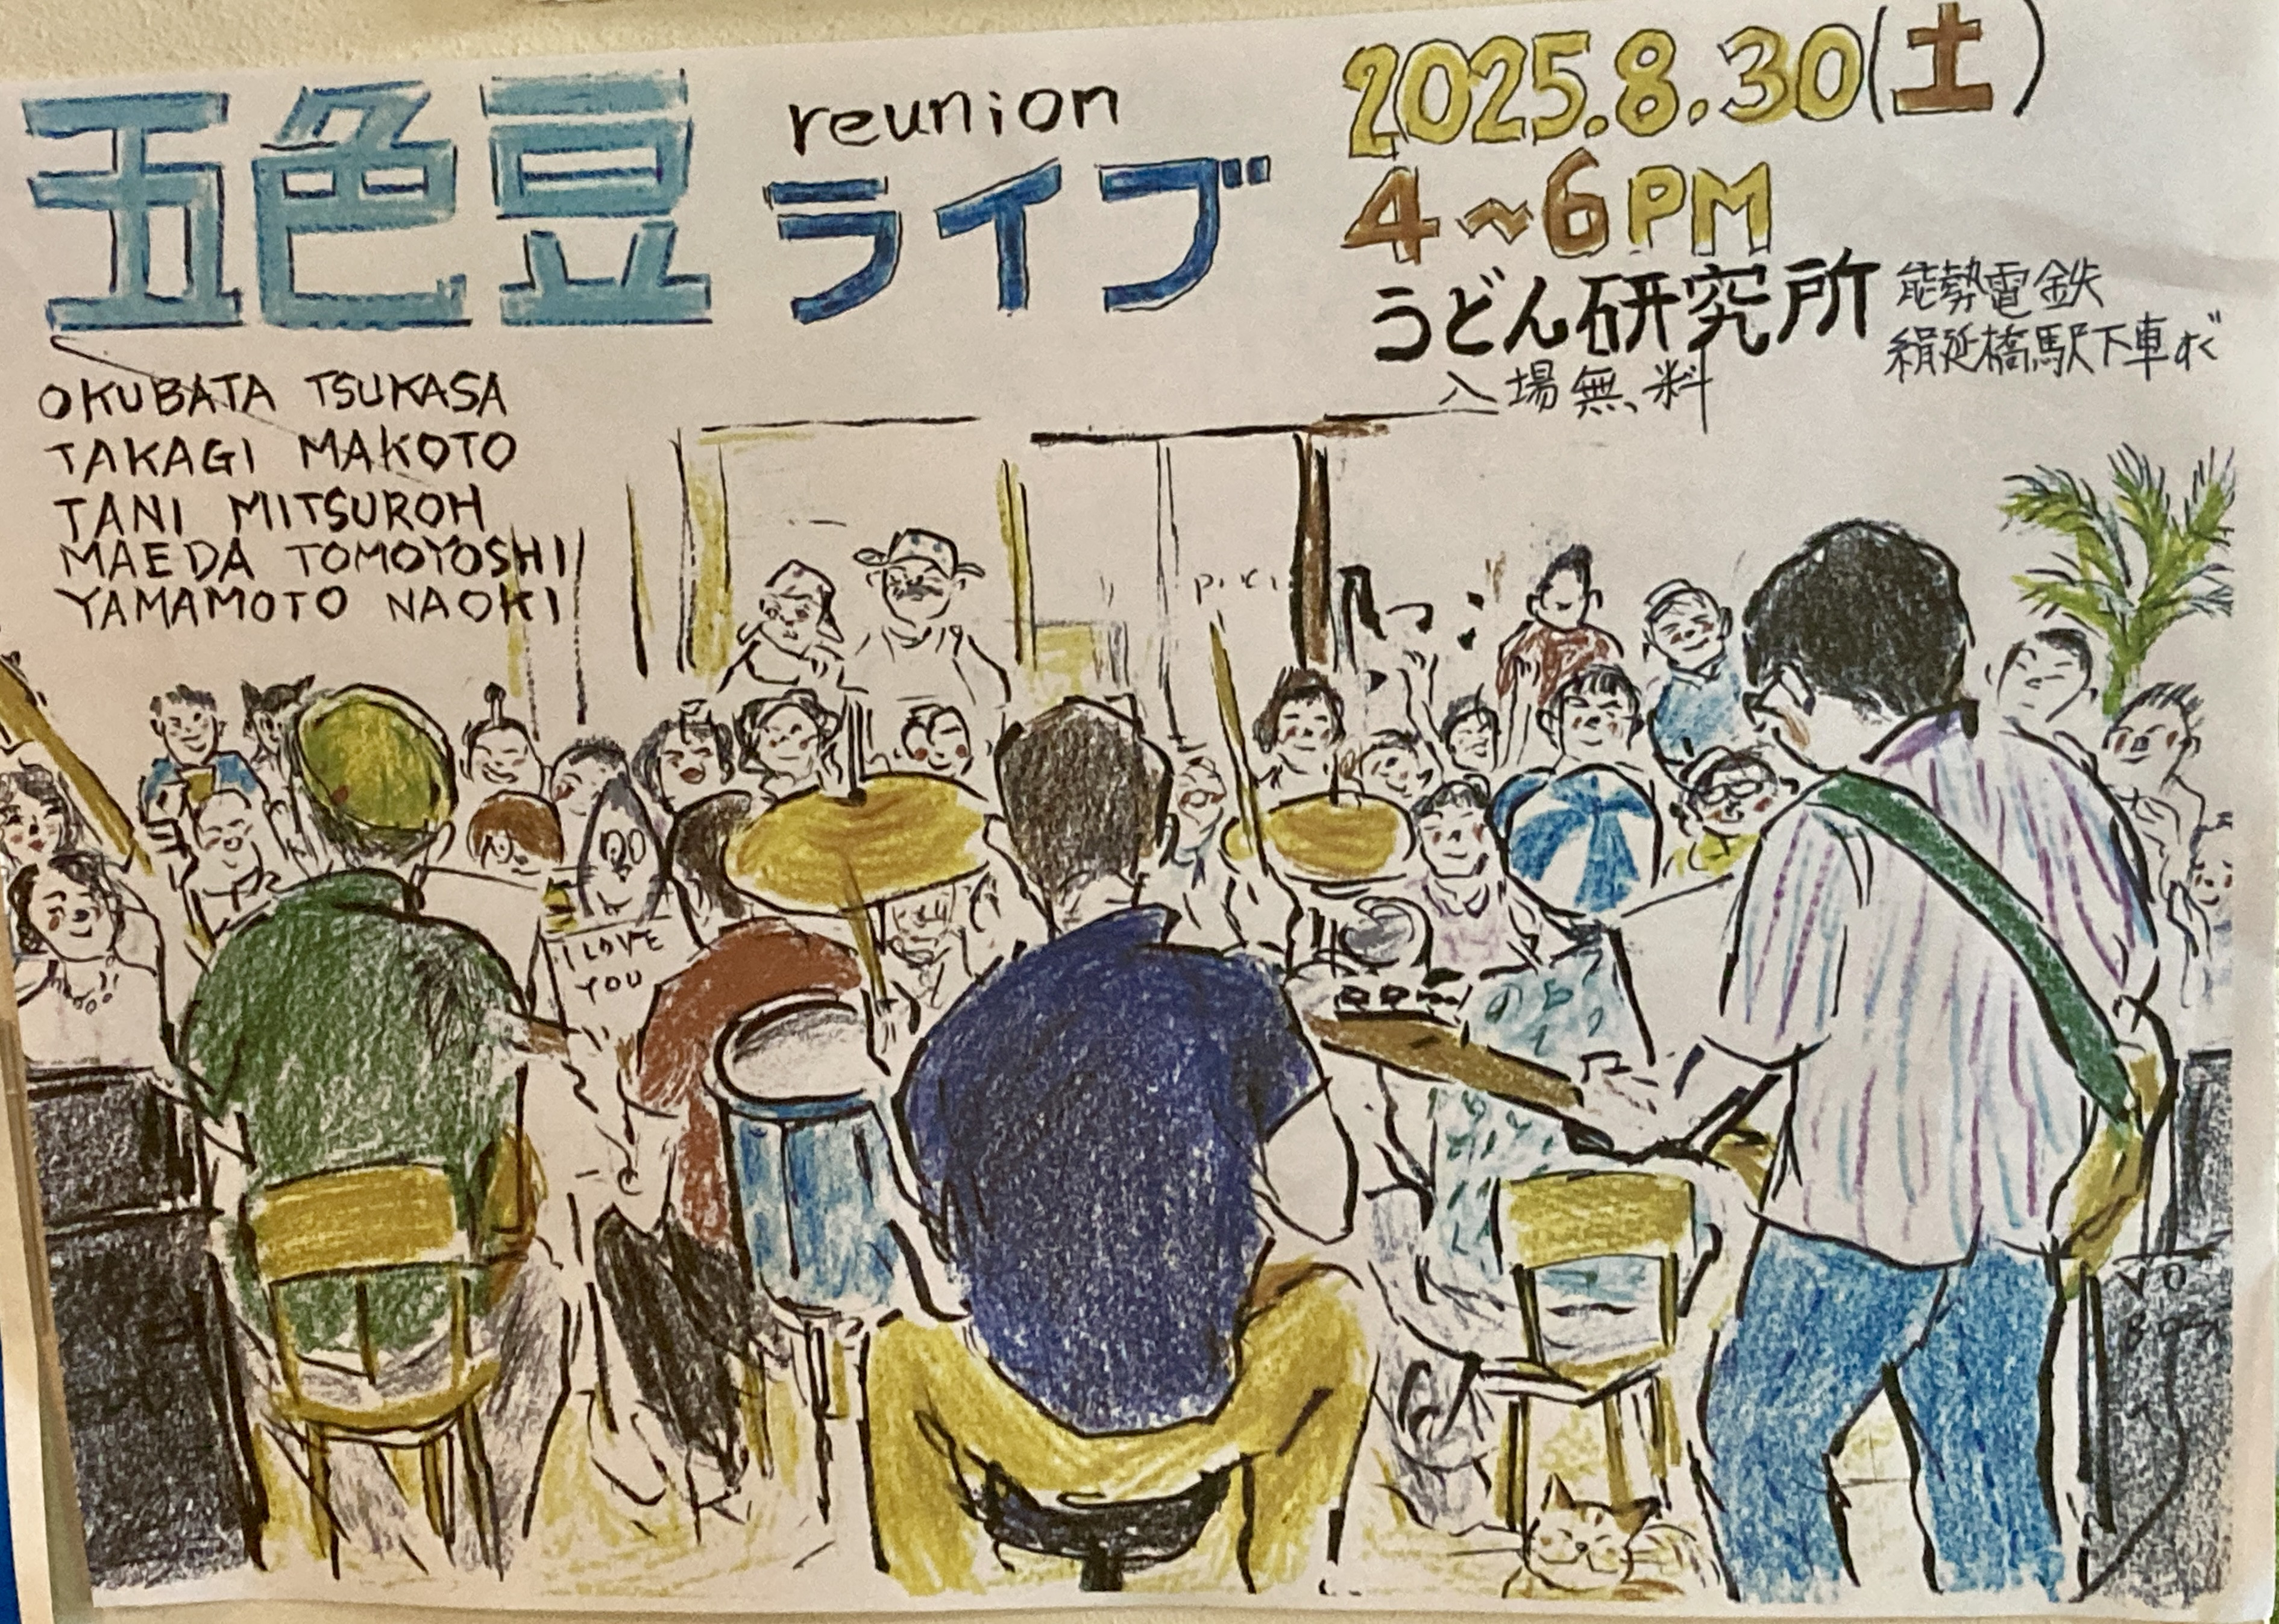 五色豆
reunion
ライブ
2025.8.30(土)
4~6PM
うどん研究所
能勢電鉄
絹延橋駅下車すぐ
入場無料
OKUBATA TSUKASA
TAKAGI MAKOTO
TANI MITSUROH
MAEDA TOMOYOSHI
YAMAMOTO NAOKI
I LOVE
YOU